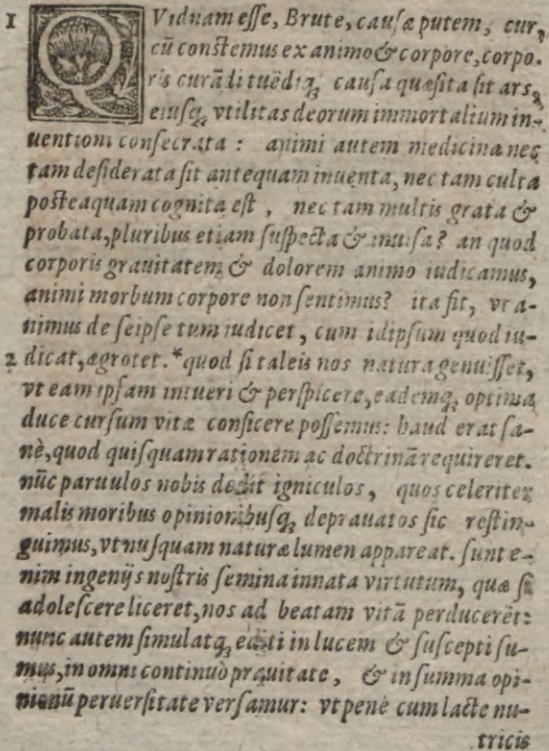 1 QVidnam esse, Brute, causæ putem, cur,
cū constemus ex animo & corpore, corpo-
ris curādi tuēdiq; causa quæsita sit ars,
eiusq; vtilitas deorum immortalium in-
uentioni consecrata : animi autem medicina nec
tam desiderata sit antequam inuenta, nec tam culta
posteaquam cognita est , nec tam multis grata &
probata, pluribus etiam suspecta & inuisa? an quod
corporis grauitatem & dolorem animo iudicamus,
animi morbum corpore non sentimus? ita fit, vt a-
nimus de seipse tum iudicet, cum idipsum quod iu-
2 dicat, ægrotet. *quod si taleis nos natura genuisset,
vt eam ipsam intueri & perspicere, eademq; optima
duce cursum vitæ conficere possemus: haud erat sa-
nè, quod quisquam rationem ac doctrinā requireret.
nūc paruulos nobis dedit igniculos, quos celeriter
malis moribus opinionibusq; deprauatos sic restin-
guimus, vt nusquam naturæ lumen appareat. sunt e-
nim ingenijs nostris semina innata virtutum, quæ si
adolescere liceret, nos ad beatam vitā perducerēt:
nunc autem simulatq; editi in lucem & suscepti su-
mus, in omni continuò prauitate, & in summa opi-
nionū peruersitate versamur: vt penè cum lacte nu-
tricis